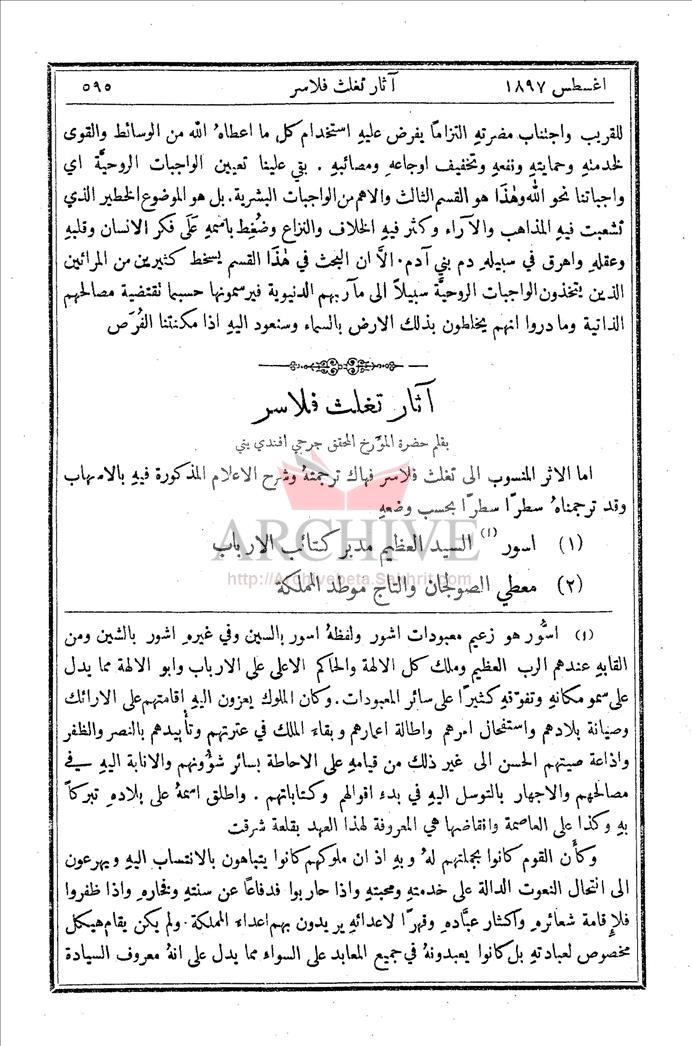 اغسطس ١٨٩٧
آثار تغلث فلاسر
٥٩٥
للقريب واجتناب مضرتهِ التزامًا يفرض عليهِ استخدام كل ما اعطاهُ الله من الوسائط والقوى
لخدمتهِ وحمايتهِ ونفعهِ وتخفيف اوجاعهِ ومصائبهِ . بقي علينا تعيين الواجبات الروحيَّة اي
واجباتنا نحو الله وهٰذَا هو القسم الثالث والاهم من الواجبات البشرية. بل هو الموضوع الخطير الذي
تشعبت فيهِ المذاهب والآراء وكثر فيهِ الخلاف والنزاع وضُغِط باسمهِ عَلَى فكر الانسان وقلبهِ
وعقلهِ واهرق في سبيلهِ دم بني آدم. الاَّ ان البحث في هٰذَا القسم يسخط كثيرين من المرائين
الذين يتخذون الواجبات الروحيَّة سبيلاً الى مآربهم الدنيوية فيرسمونها حسبما تقتضية مصالحهم
الذاتية وما دروا انهم يخلطون بذلك الارض بالسماء وسنعود اليهِ اذا مكنتنا الفُرَص
آثار تغلث فلاسر
بقلم حضرة المؤرخ المحقق جرجي افندي يني
اما الاثر المنسوب الى تغلث فلاسر فهاك ترجمتهُ وشرح الاعلام المذكورة فيهِ بالاسهاب
وقد ترجمناهُ سطرًا سطرًا بحسب وضعهِ
ARCHIVE
(١) اسور (١) السيد العظيم مدبر كتائب الارباب
http://Archivebeta.Sakhrit.com
(٢) معطي الصولجان والتاج موطد المملكة
(١) اسُّور هو زعيم معبودات اشور ولفظهُ اسور بالسين وفي غيرهِ اشور بالشين ومن
القابهِ عندهم الرب العظيم وملك كل الالهة والحاكم الاعلى على الارباب وابو الالهة مما يدل
على سمو مكانهِ وتفوّقهِ كثيرًا على سائر المعبودات. وكان الملوك يعزون اليهِ اقامتهم على الارائك
وصيانة بلادهم واستفحال امرهم واطالة اعمارهم وبقاء الملك في عترتهم وتأييدهم بالنصر والظفر
واذاعة صيتهم الحسن الى غير ذلك من قيامهِ على الاحاطة بسائر شؤونهم والانابة اليهِ في
مصالحهم والاجهار بالتوسل اليهِ في بدء اقوالهم وكتاباتهم . واطلق اسمهُ على بلادهِ تبركاً
بهِ وكذا على العاصمة وانقاضها هي المعروفة لهذا العهد بقلعة شرقت
وكأن القوم كانوا بجملتهم لهُ وبهِ اذ ان ملوكهم كانوا يتباهون بالانتساب اليهِ ويهرعون
الى انتحال النعوت الدالة على خدمتهِ ومحبتهِ واذا حاربوا فدفاعًا عن سنتهِ وفخارهِ واذا ظفروا
فلإقامة شعائرهِ واكثار عبَّادهِ وقهرًا لاعدائهِ يريدون بهم اعداء المملكة. ولم يكن يقام هيكل
مخصوص لعبادتهِ بل كانوا يعبدونهُ في جميع المعابد على السواء مما يدل على انهُ معروف السيادة